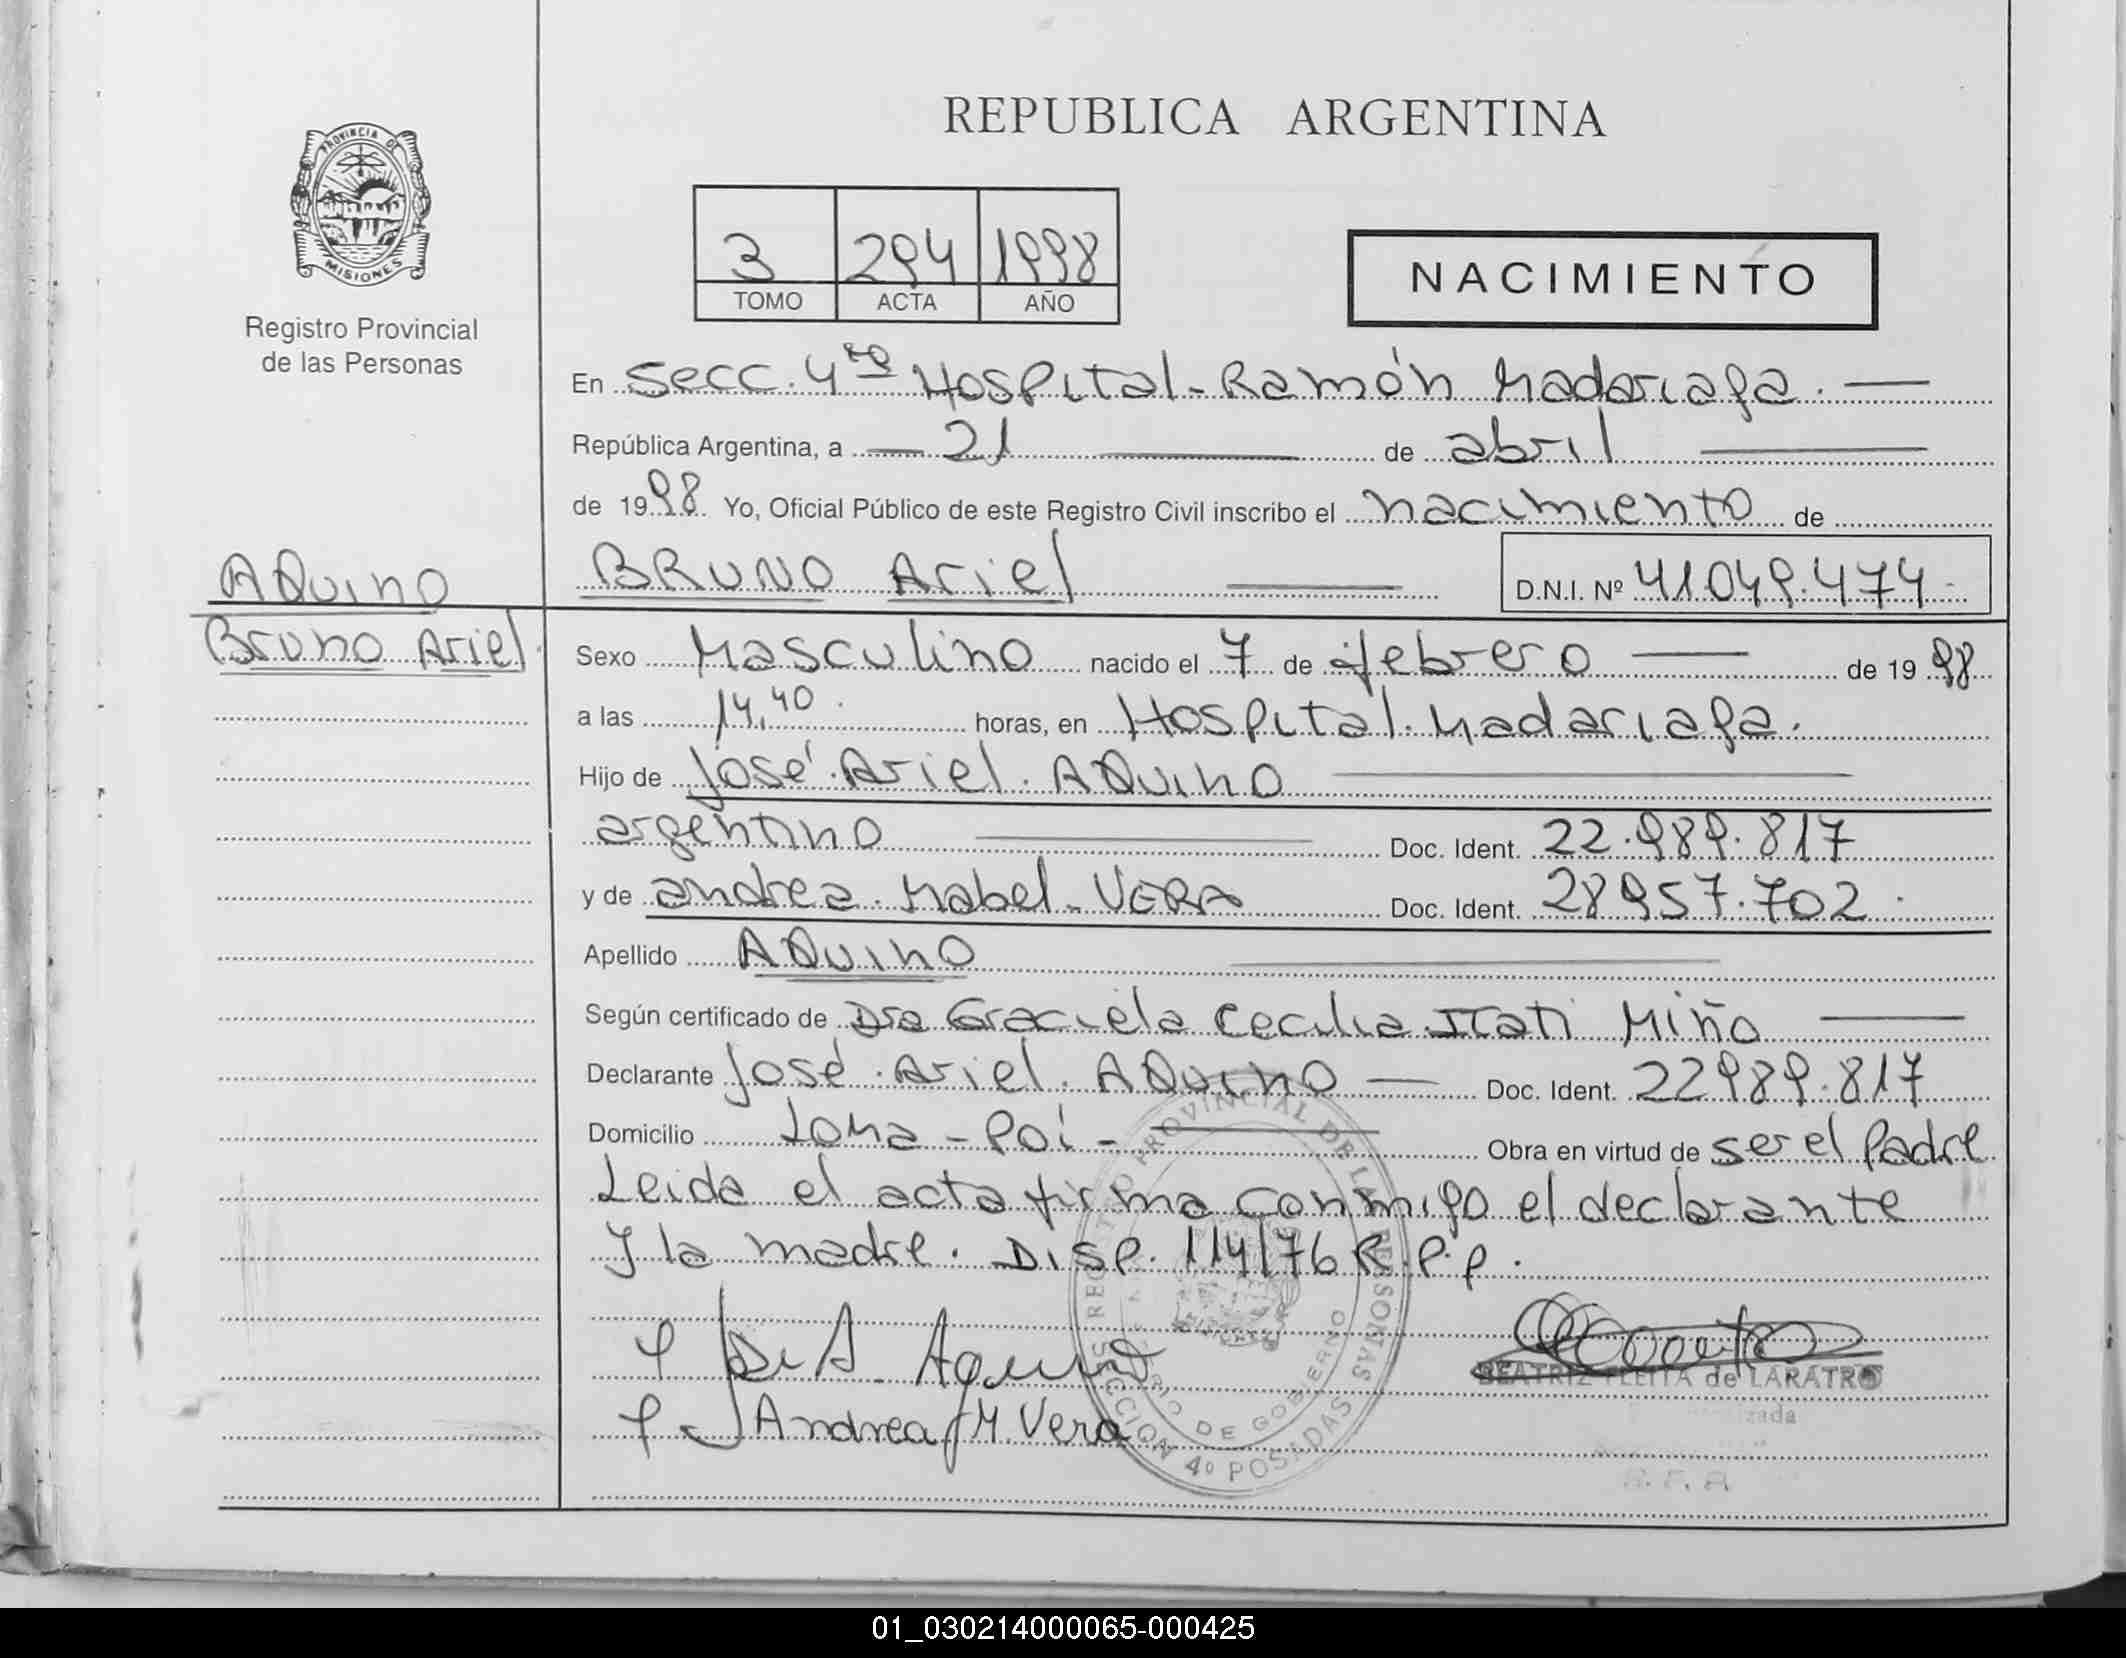 REPUBLICA ARGENTINA
PROVINCIA DE
MISIONES
Registro Provincial
de las Personas
3 294 1998
TOMO ACTA AÑO
NACIMIENTO
En Secc. 4ta Hospital - Ramón Madariaga.
República Argentina, a 21 de abril
de 1998. Yo, Oficial Público de este Registro Civil inscribo el nacimiento de
AQuino
BRUNO Ariel D.N.I. Nº 41049.474
Bruno Ariel.
Sexo Masculino nacido el 7 de febrero de 1998
a las 14,40 horas, en Hospital. Madariaga.
Hijo de José. Ariel. AQuino
argentino Doc. Ident. 22.989.817
y de andrea. Mabel - VERA Doc. Ident. 28957.702
Apellido AQuino
Según certificado de Dra Graciela Cecilia Itati Miño
Declarante José. Ariel. AQuino Doc. Ident. 22989.817
Domicilio Loma - Poi - Obra en virtud de ser el Padre
Leida el acta firma conmigo el declarante
y la madre. Disp. 114/76 R.P.p.
Andrea M. Vera
BEATRIZ LEITA de LARATRO
REGISTRO PROVINCIAL DE LAS PERSONAS
MINISTERIO DE GOBIERNO
SECCION 4º POSADAS
01_030214000065-000425